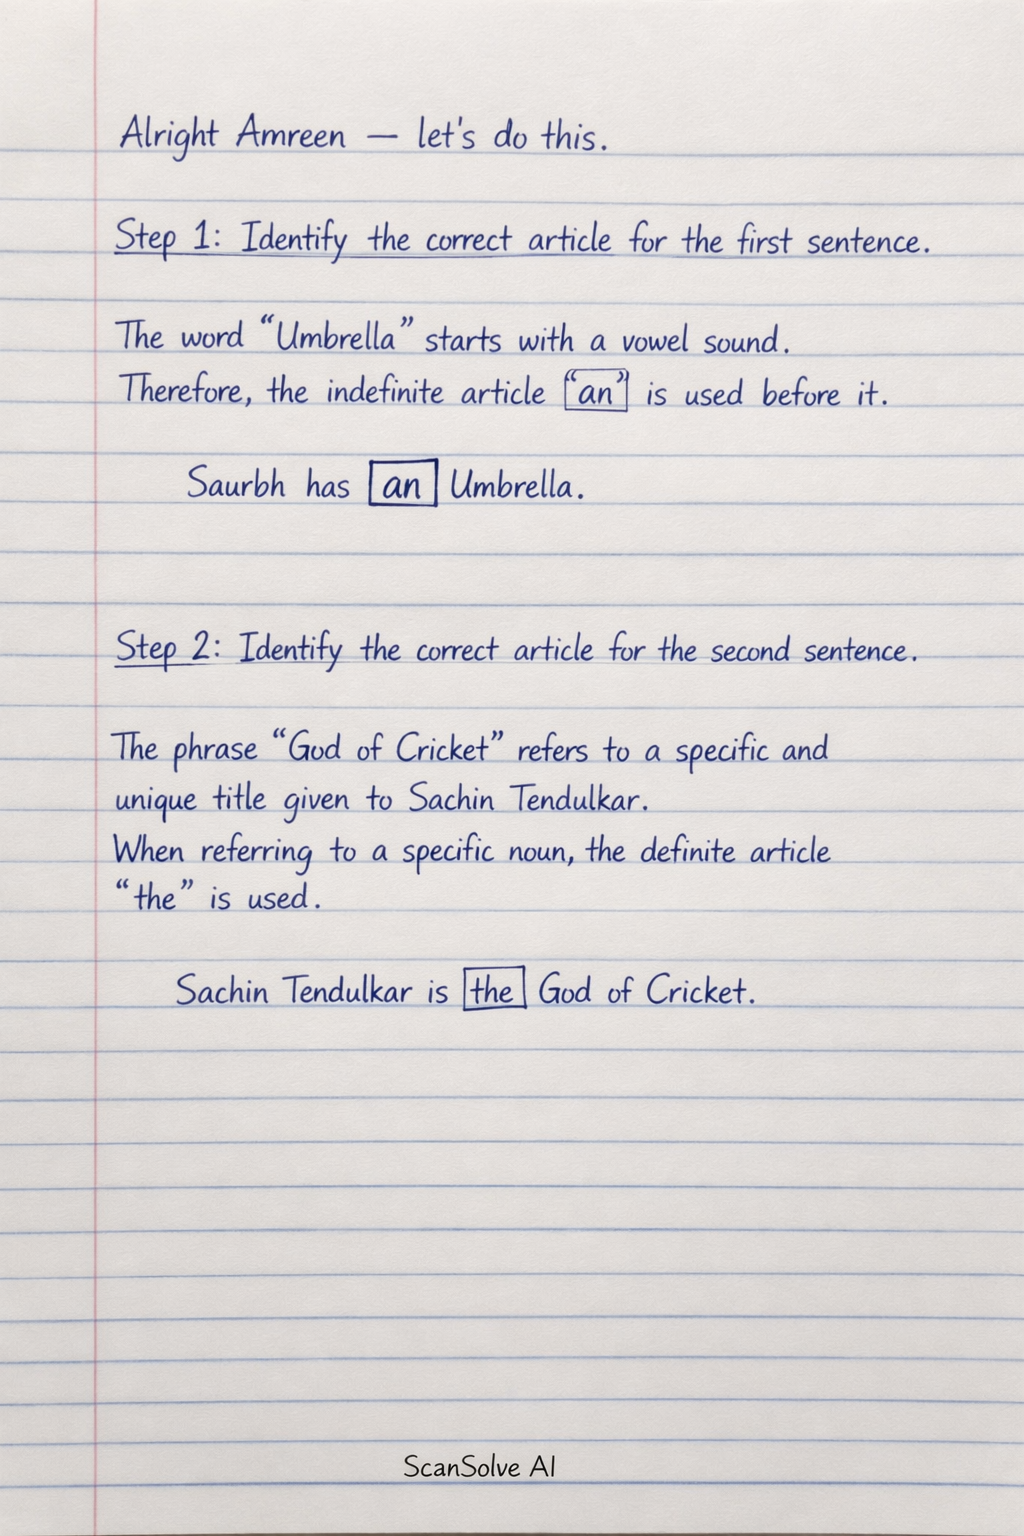 Alright Amreen — let's do this.
Step 1: Identify the correct article for the first sentence.
The word “Umbrella” starts with a vowel sound.
Therefore, the indefinite article “an” is used before it.
Saurbh has an Umbrella.
Step 2: Identify the correct article for the second sentence.
The phrase “God of Cricket” refers to a specific and
unique title given to Sachin Tendulkar.
When referring to a specific noun, the definite article
“the” is used.
Sachin Tendulkar is the God of Cricket.
ScanSolve AI